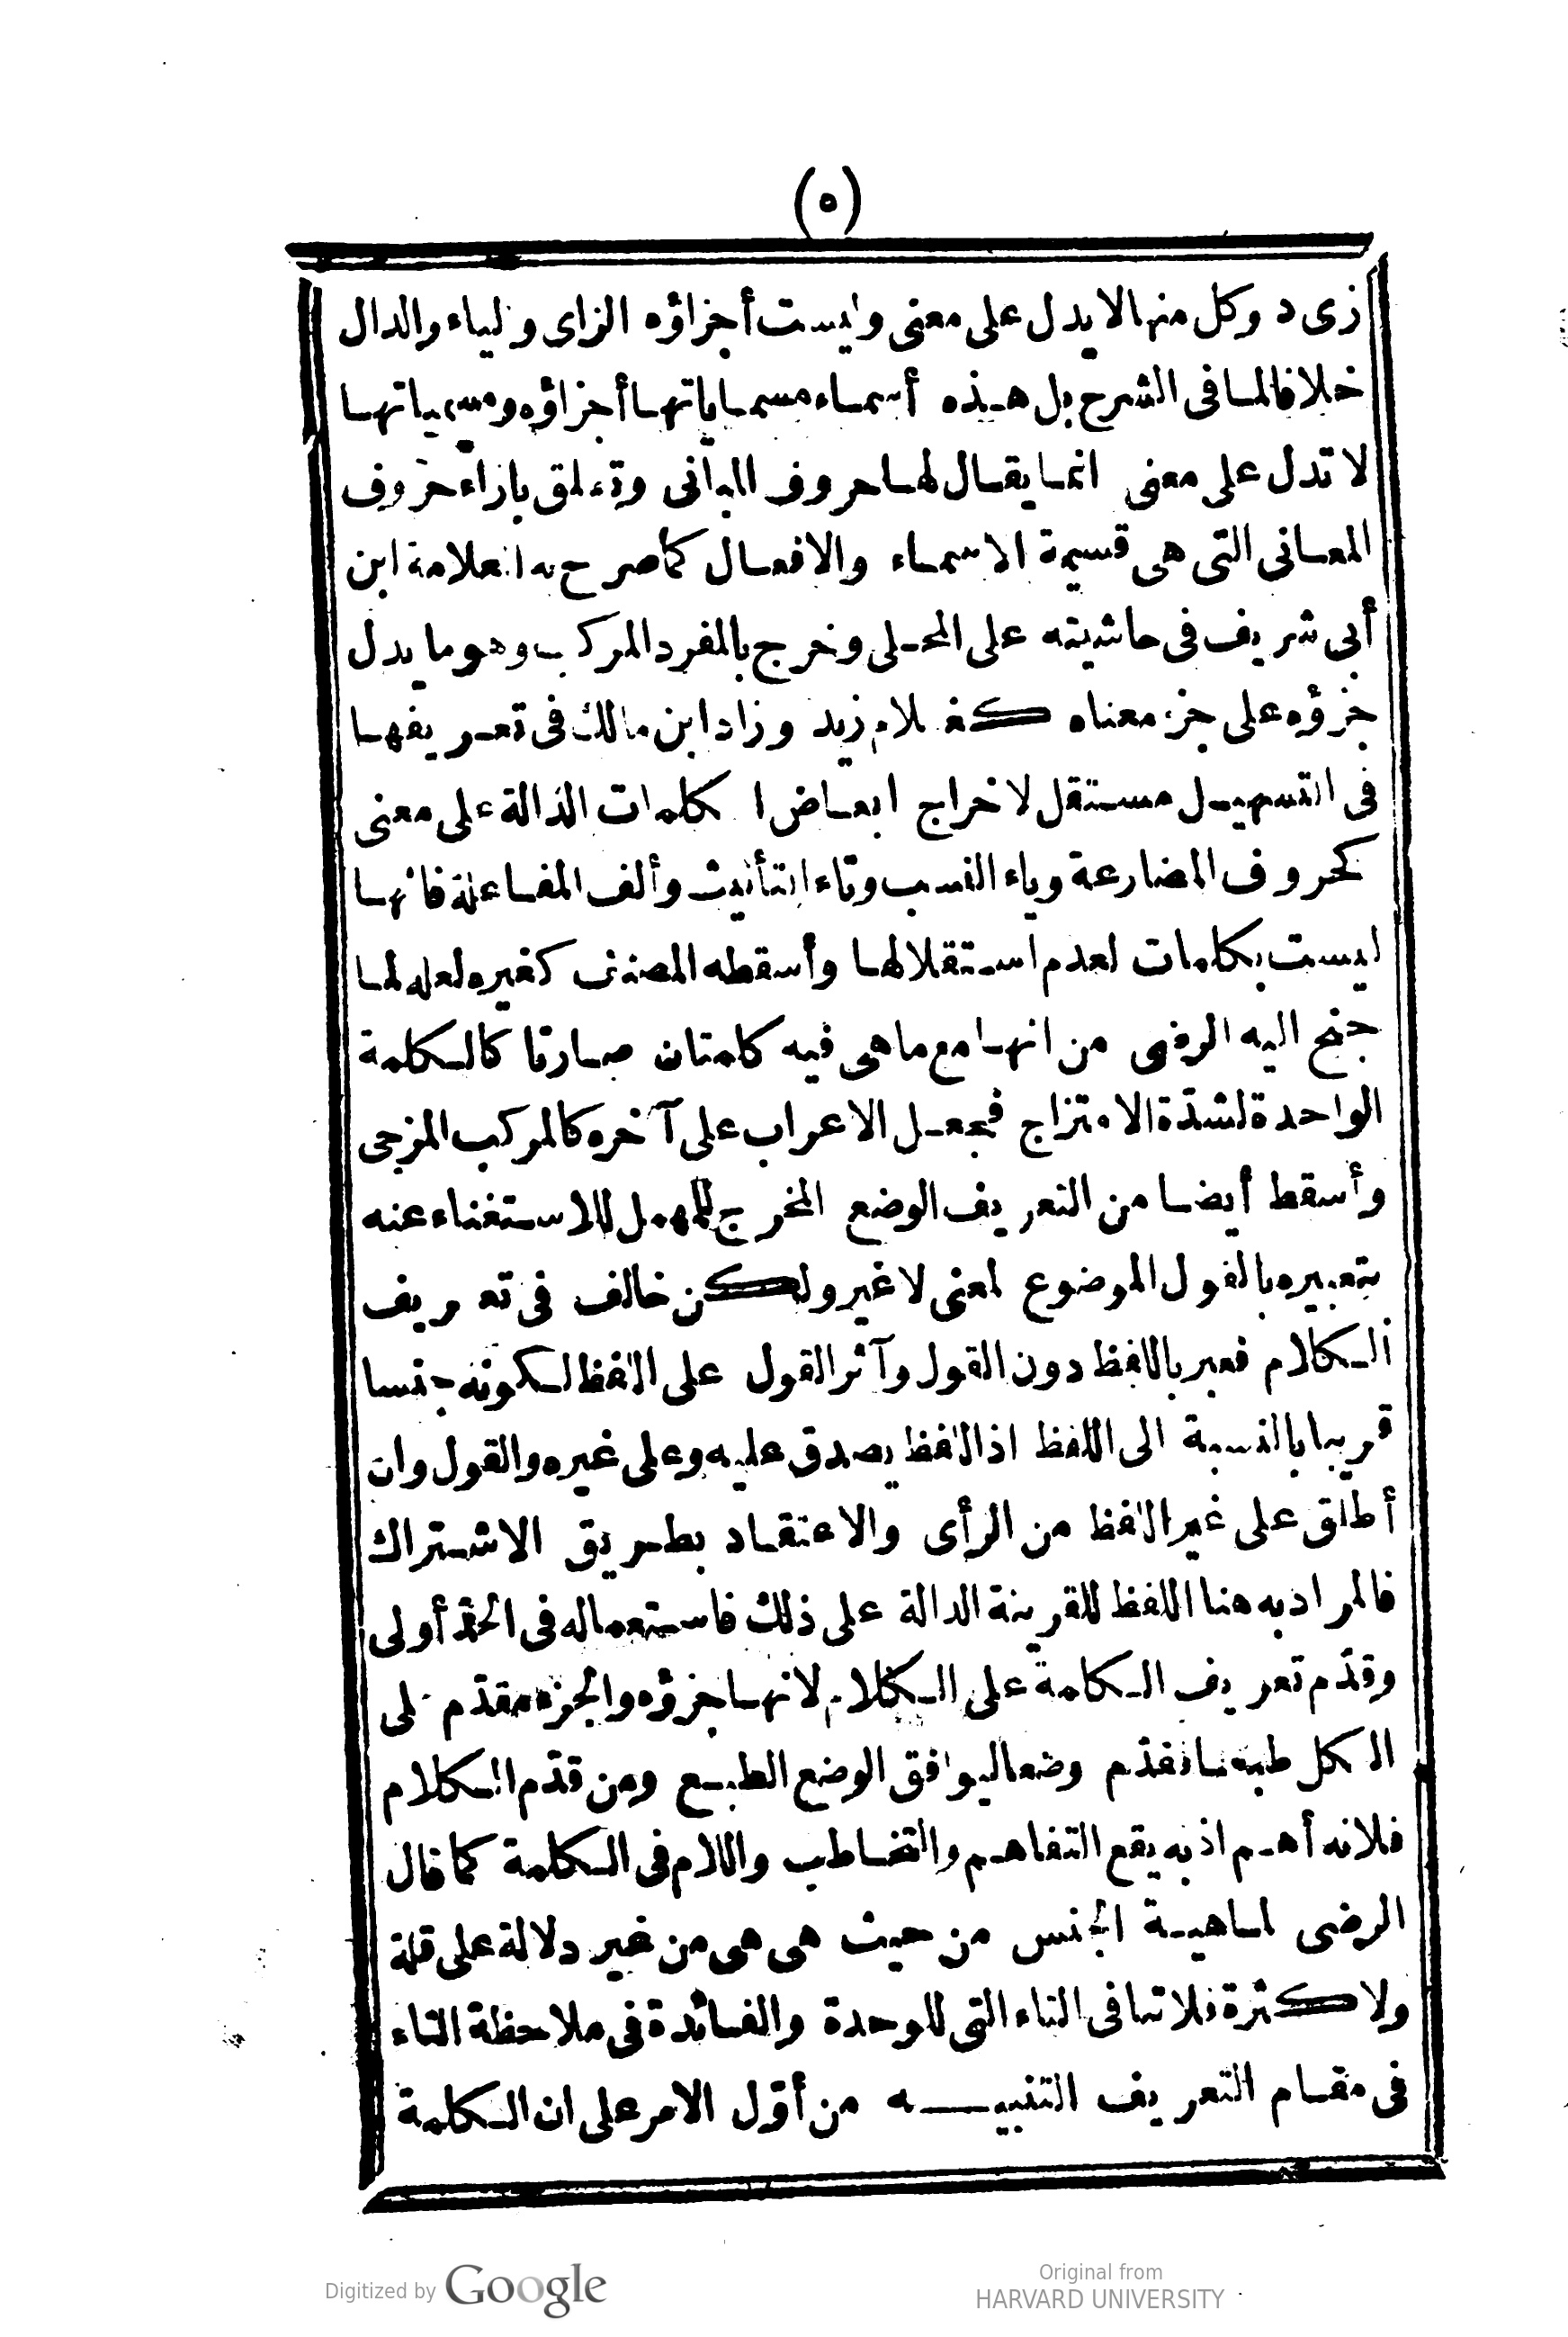 (٥)
زى د وكل منها لا يدل على معنى وليست أجزاؤه الزاى والياء والدال
خلافا لما فى الشرح بل هذه أسماء مسماياتها أجزاؤه ومسمياتها
لا تدل على معنى انما يقال لها حروف المبانى وتطلق بازاء حروف
المعانى التى هى قسيمة الاسماء والافعال كما صرح به العلامة ابن
أبى شريف فى حاشيته على المحلى وخرج بالمفرد المركب وهو ما يدل
جزؤه على جزء معناه كغلام زيد وزاد ابن مالك فى تعريفها
فى التسهيل مستقل لاخراج ابعاض الكلمات الدالة على معنى
كحروف المضارعة وياء النسب وتاء التأنيث وألف المفاعلة فانها
ليست بكلمات لعدم استقلالها وأسقطه المصنف كغيره لعله لما
جنح اليه الرضى من انها مع ما هى فيه كلمتان صارتا كالكلمة
الواحدة لشدّة الامتزاج فجعل الاعراب على آخره كالمركب المزجى
وأسقط أيضا من التعريف الوضع المخرج للمهمل للاستغناء عنه
بتعبيره بالقول الموضوع لمعنى لا غير ولكن خالف فى تعريف
الكلام فعبر باللفظ دون القول وآثر القول على اللفظ لكونه جنسا
قريبا بالنسبة الى اللفظ اذ اللفظ يصدق عليه وعلى غيره والقول وان
أطلق على غير اللفظ من الرأى والاعتقاد بطريق الاشتراك
فالمراد به هنا اللفظ للقرينة الدالة على ذلك فاستعماله فى الحدّ أولى
وقدّم تعريف الكلمة على الكلام لانها جزؤه والجزء مقدّم على
الكل طبعا فقدّم وضعا ليوافق الوضع الطبع ومن قدّم الكلام
فلانه أهم اذ به يقع التفاهم والتخاطب واللام فى الكلمة كما قال
الرضى لماهية الجنس من حيث هى هى من غير دلالة على قلة
ولا كثرة فلا تنافى التاء التى للوحدة والفائدة فى ملاحظة التاء
فى مقام التعريف التنبيه من أوّل الامر على ان الكلمة
Digitized by Google
Original from
HARVARD UNIVERSITY